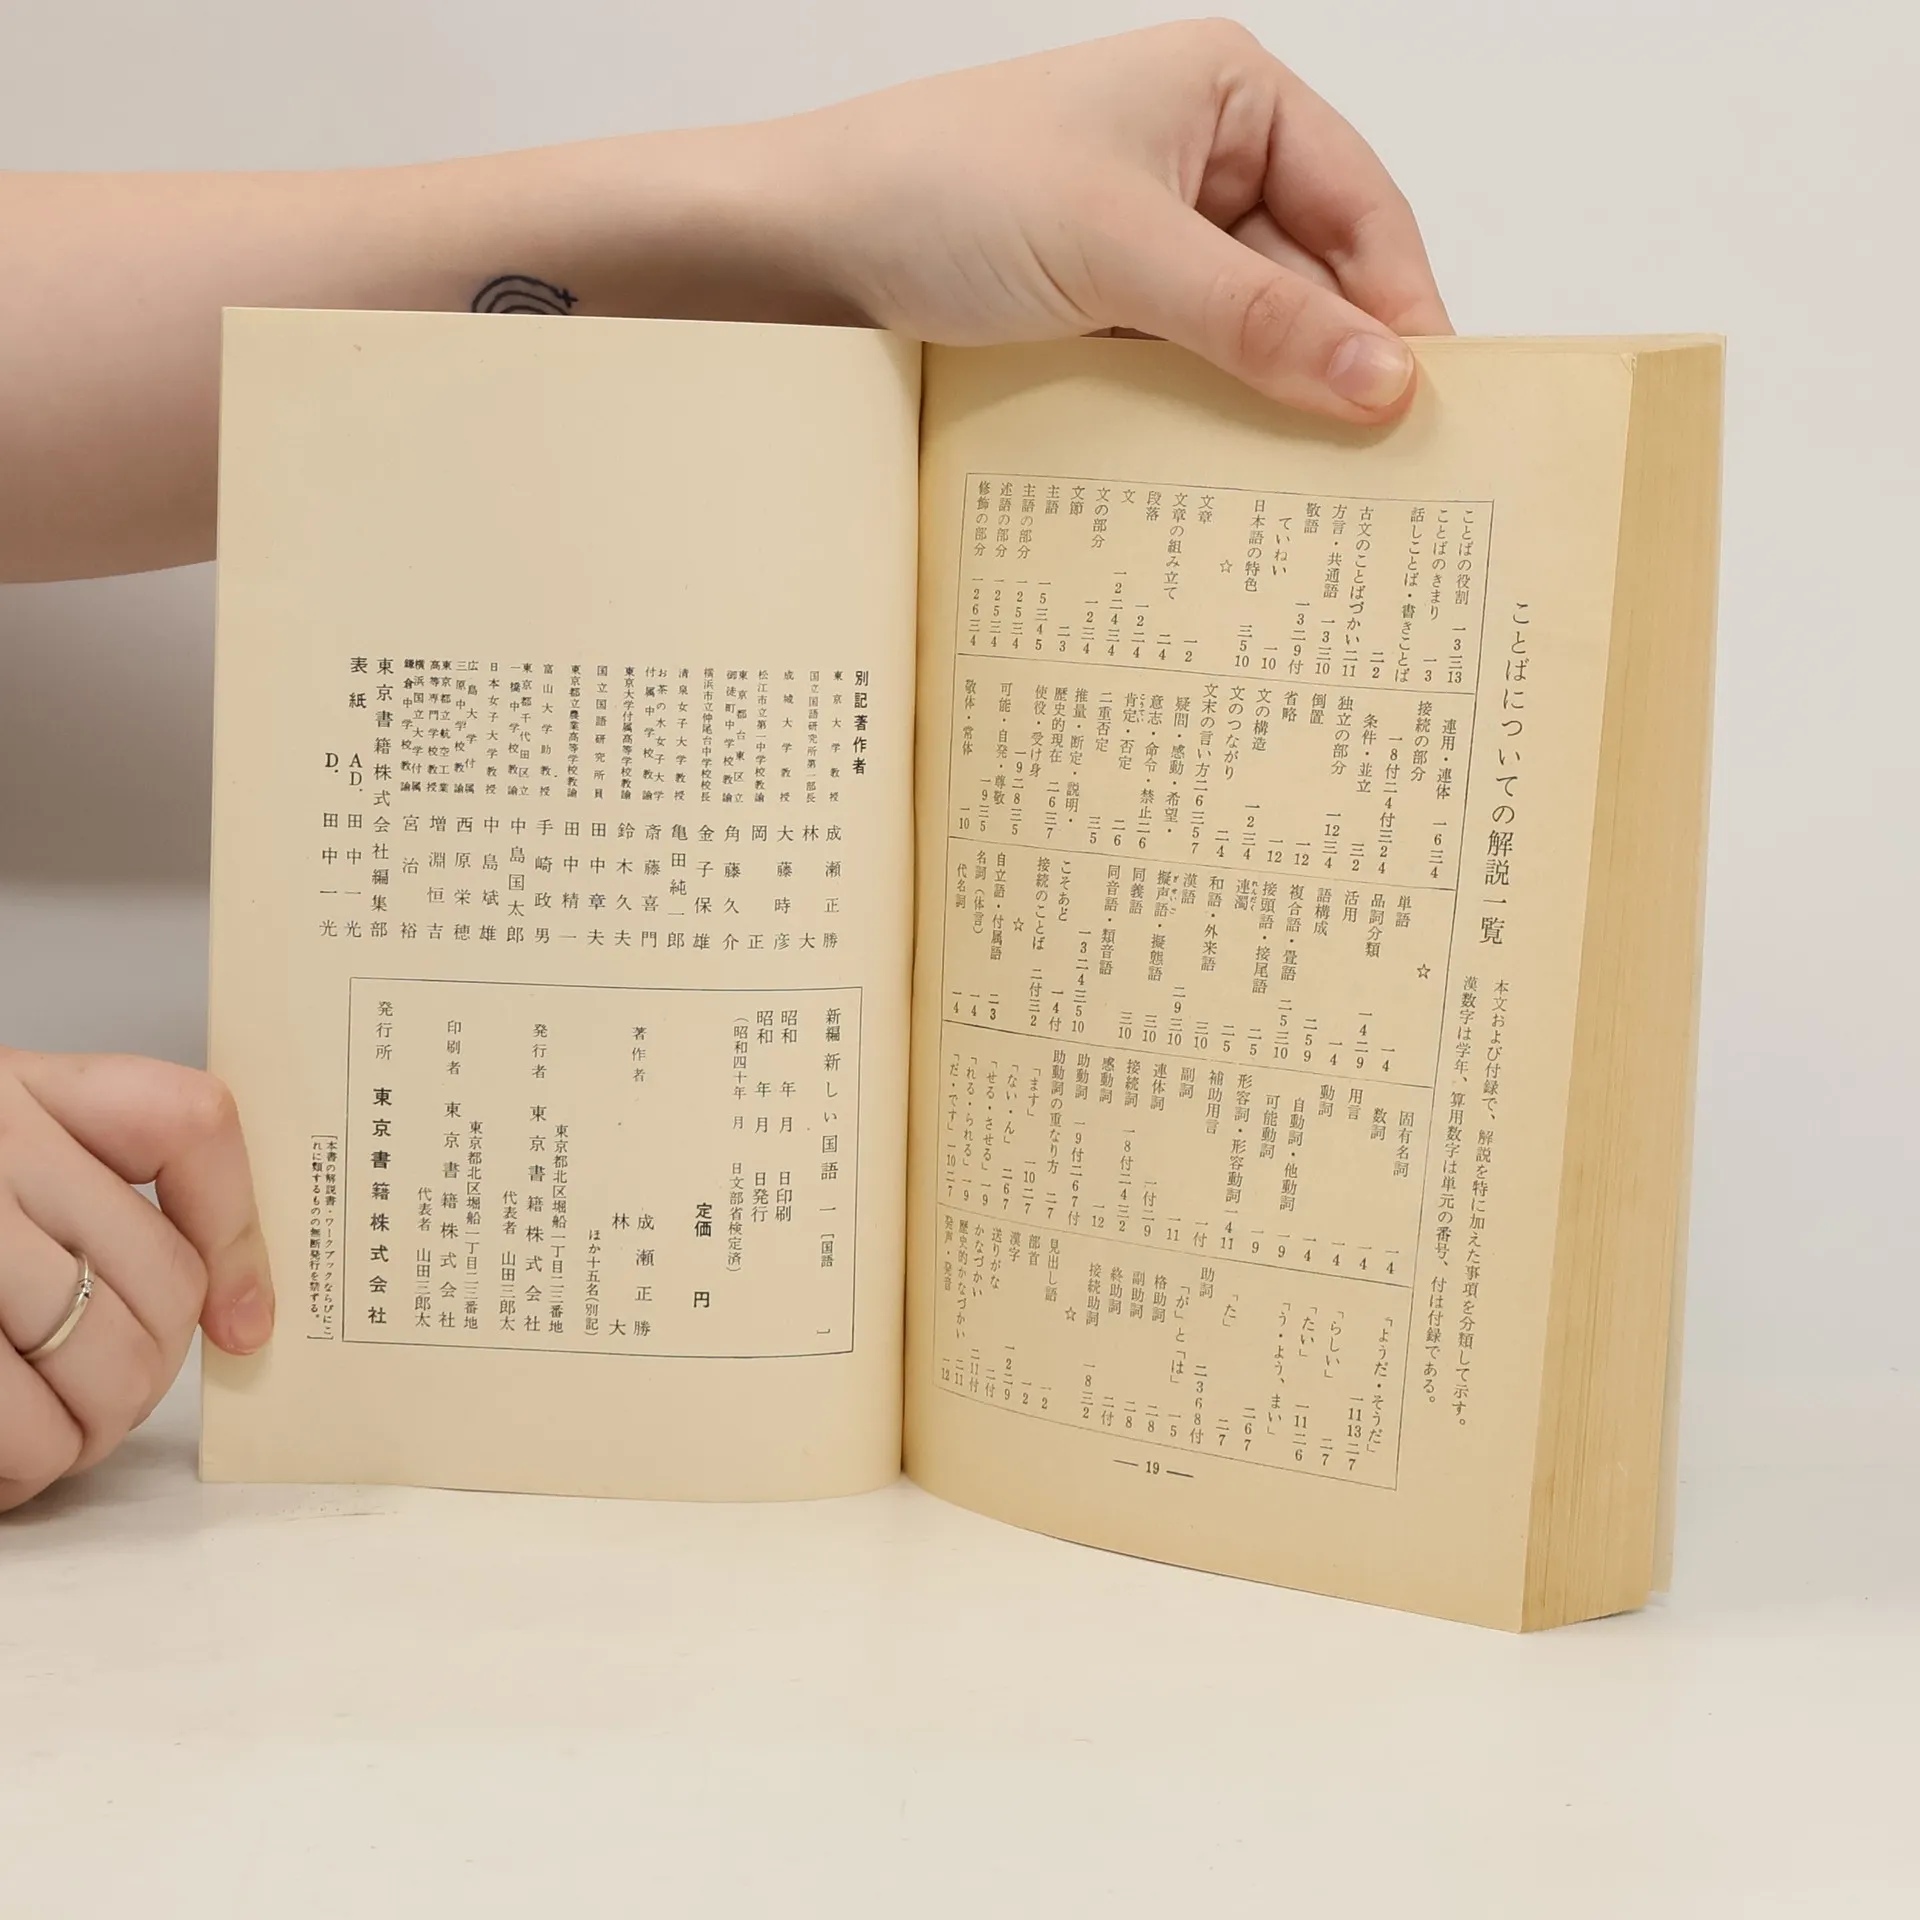 ことばについての解説一覧
本文および付録で、解説を特に加えた事項を分類して示す。
漢数字は学年、算用数字は単元の番号、付は付録である。
ことばの役割 一3三13
ことばのきまり 一3
話しことば・書きことば 二2
古文のことばづかい 二11
方言・共通語 一3三10
敬語 一3二9付
ていねい 一10
日本語の特色 三510
☆
文章 一2
文章の組み立て 二4
段落 一2二4
文 一2二4三4
文の部分 一2三4
文節 二3
主語 一5三45
主語の部分 一25三4
述語の部分 一25三4
修飾の部分 一26三4
連用・連体 一6三4
接続の部分 一8付二4付三24
条件・並立 三2
独立の部分 一12三4
倒置 一12
省略 一12
文の構造 一2三4
文のつながり 二4
文末の言い方 二6三57
疑問・感動・希望・
意志・命令・禁止 二6
肯定・否定 二6
二重否定 三5
推量・断定・説明・
歴史的現在 二6三7
使役・受け身
可能・自発・尊敬 一9二8三5
敬体・常体 一10
☆
単語 一4
品詞分類 一4二9
活用 一4
語構成 二59
複合語・畳語 二5三10
接頭語・接尾語 二5
連濁 二5
和語・外来語 三10
漢語 二9三10
擬声語・擬態語 三10
同義語 三10
同音語・類音語
こそあど 一3二4三510
接続のことば 二付三2
☆
自立語・付属語 二3
名詞(体言) 一4
代名詞 一4
固有名詞 一4
数詞 一4
用言 一4
動詞 一4
自動詞・他動詞 一9
可能動詞 一9
形容詞・形容動詞 一411
補助用言 一付
副詞 一11
連体詞 一付二9
接続詞 一8付二4三2
感動詞 一12
助動詞 一9付二67付
助動詞の重なり方 二7
「ます」 一10二7
「ない・ん」 二67
「せる・させる」 一9
「れる・られる」 一9
「だ・です」 一10二7
「ようだ・そうだ」 一1113二7
「らしい」 二7
「たい」 一11二6
「う・よう、まい」 二67
「た」 二7
助詞 二368付
「が」と「は」 一5
格助詞 二8
副助詞 二8
終助詞 二付
接続助詞 一8三2
☆
見出し語 一2
部首 一2
漢字 一2二9
送りがな 二付
かなづかい 二11付
歴史的かなづかい 二11
発声・発音 一12
— 19 —
別記著作者
東京大学教授 成瀬正勝
国立国語研究所第一部長 林大
成城大学教授 大藤時彦
松江市立第一中学校教諭 岡正
東京都台東区立御徒町中学校教諭 角藤久介
横浜市立仲尾台中学校校長 金子保雄
清泉女子大学教授 亀田純一郎
お茶の水女子大学付属中学校教諭 斎藤喜門
東京大学付属高等学校教諭 鈴木久夫
国立国語研究所所員 田中章夫
東京都立農業高等学校教諭 田中精一
富山大学助教授 手崎政男
東京都千代田区立一橋中学校教諭 中島国太郎
日本女子大学教授 中島斌雄
広島大学付属三原中学校教諭 西原栄穂
東京都立航空工業高等専門学校教授 増淵恒吉
横浜国立大学付属鎌倉中学校教諭 宮治裕
東京書籍株式会社編集部
表紙 AD. 田中一光
D. 田中一光
新編 新しい国語 一 [国語 ]
昭和 年 月 日印刷
昭和 年 月 日発行
(昭和四十年 月 日文部省検定済)
定価 円
著作者 成瀬正勝
林大
ほか十五名(別記)
東京都北区堀船一丁目二三番地
発行者 東京書籍株式会社
代表者 山田三郎太
東京都北区堀船一丁目二三番地
印刷者 東京書籍株式会社
代表者 山田三郎太
発行所 東京書籍株式会社
[本書の解説書・ワークブックならびにこ
れに類するものの無断発行を禁ずる。]